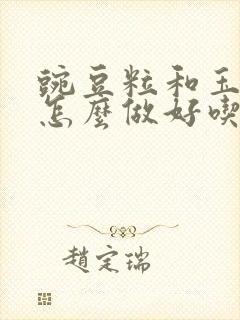 豌豆粒和玉
怎麼做好喫
趙定瑞